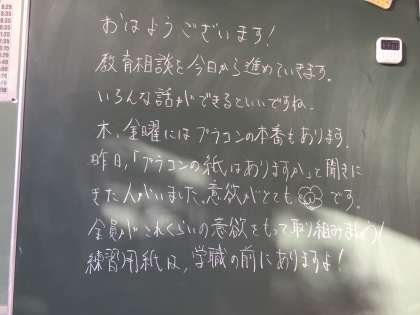 おはようございます!
教育相談を今日から進めていきます。
いろんな話ができるといいですね。
木、金曜にはプラコンの本番もあります。
昨日、「プラコンの紙はありますか」と聞きに
きた人がいました。意欲がとても です。
全員がこれくらいの意欲をもって取り組みましょう!
練習用紙は、学職の前にありますよ!